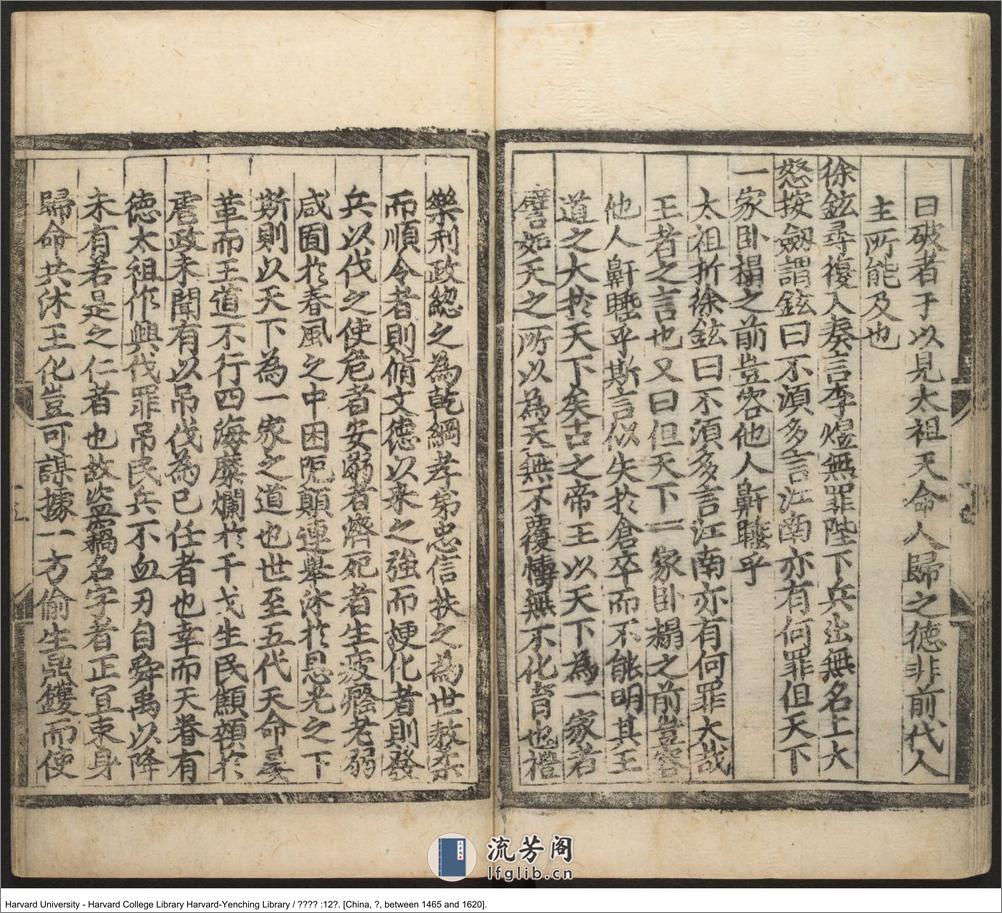 日破者于以見太祖天命人歸之德非前代人
主所能及也
徐鉉尋復入奏言李煜無罪陛下兵出無名上大
怒按劔謂鉉曰不湏多言江南亦有何罪但天下
一家卧榻之前豈容他人鼾睡乎
太祖折徐鉉曰不湏多言江南亦有何罪大哉
王者之言也又曰但天下一家卧榻之前豈容
他人鼾睡乎斯言似失於倉卒而不能明其王
道之大於天下矣古之帝王以天下為一家者
譬如天之所以為天無不覆幬無不化育也禮
樂刑政緫之為乾綱孝弟忠信扶之為世教柔
而順令者則脩文德以来之強而梗化者則發
兵以伐之使危者安弱者濟死者生疲癃老弱
咸囿於春風之中困阨顛連舉沐於恩光之下
斯則以天下為一家之道也世至五代天命屢
革而王道不行四海糜爛於干戈生民顦顇於
虐政未聞有以吊伐為已任者也幸而天眷有
德太祖作興伐罪吊民兵不血刃自舜禹以降
未有若是之仁者也故盗竊名字者正宜束身
歸命共沐王化豈可謀據一方偷生鼎鑊而使
流芳阁
lfglib.cn
Harvard University - Harvard College Library Harvard-Yenching Library / ???? :12?. [China, ?, between 1465 and 1620].